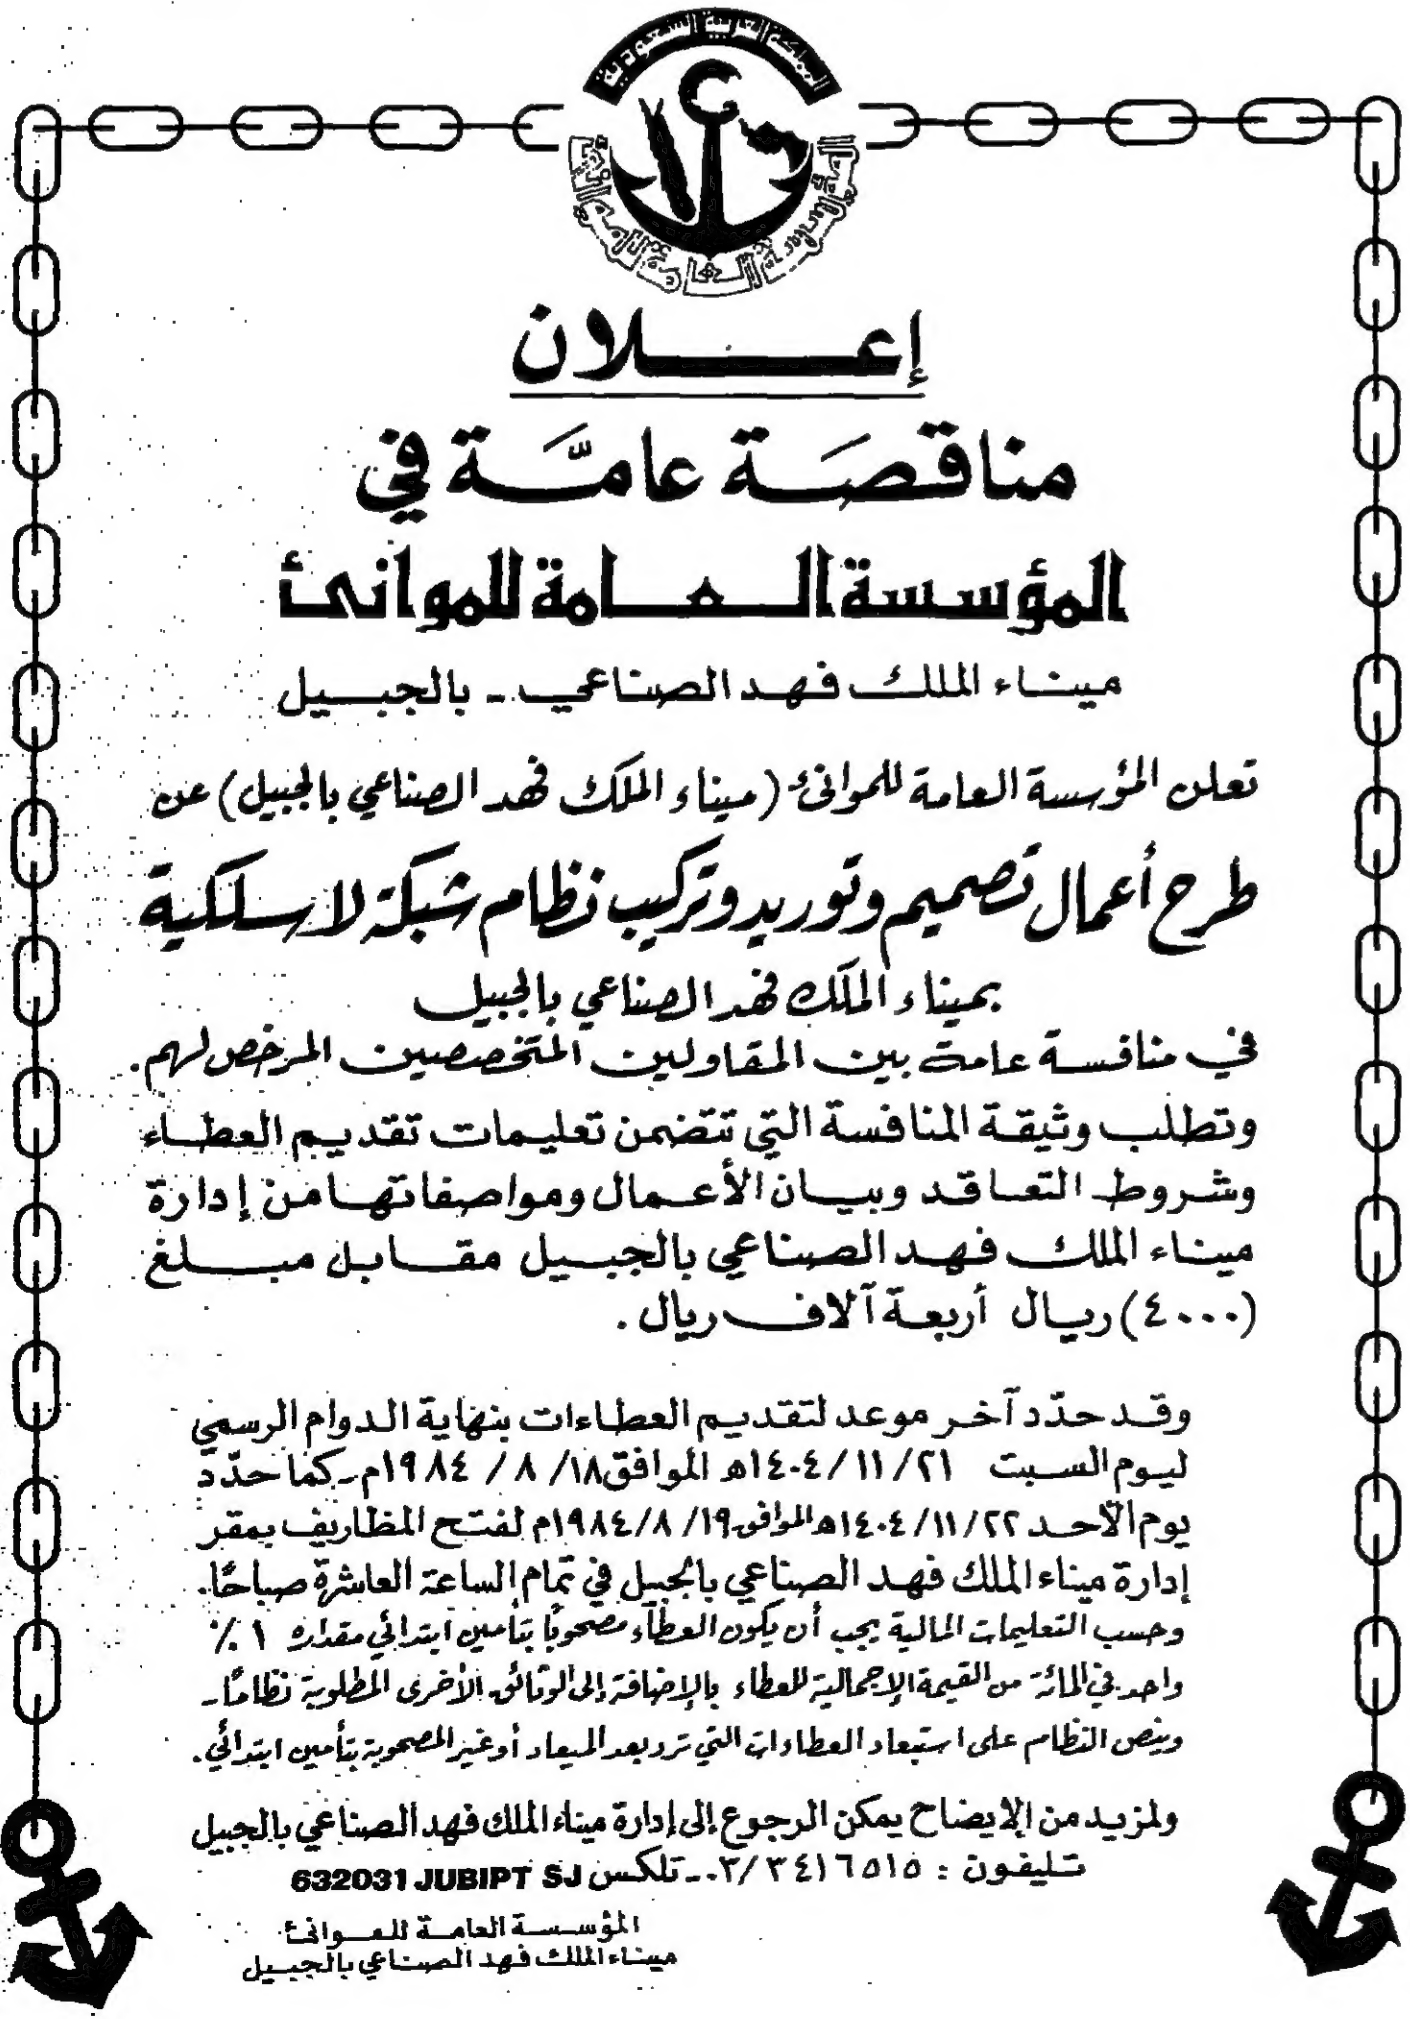 المملكة العربية السعودية
المؤسسة العامة للموانئ
إعلان
مناقصَة عامَّة في
المؤسسة العامة للموانئ
ميناء الملك فهد الصناعي - بالجبيل
تعلن المؤسسة العامة للموانئ (ميناء الملك فهد الصناعي بالجبيل) عن
طرح أعمال تصميم وتوريد وتركيب نظام شبكة لاسلكية
بميناء الملك فهد الصناعي بالجبيل
في منافسة عامة بين المقاولين المتخصصين المرخص لهم.
وتطلب وثيقة المنافسة التي تتضمن تعليمات تقديم العطاء
وشروط التعاقد وبيان الأعمال ومواصفاتها من إدارة
ميناء الملك فهد الصناعي بالجبيل مقابل مبلغ
(٤٠٠٠) ريال أربعة آلاف ريال .
وقد حدّد آخر موعد لتقديم العطاءات بنهاية الدوام الرسمي
ليوم السبت ١٤٠٤/١١/٢١هـ الموافق ١٩٨٤/٨/١٨م - كما حدّد
يوم الأحد ١٤٠٤/١١/٢٢هـ الموافق ١٩٨٤/٨/١٩م لفتح المظاريف بمقر
إدارة ميناء الملك فهد الصناعي بالجبيل في تمام الساعة العاشرة صباحًا.
وحسب التعليمات المالية يجب أن يكون العطاء مصحوبًا بتأمين ابتدائي مقداره ١ ٪
واحد في المائة من القيمة الإجمالية للعطاء بالإضافة إلى الوثائق الأخرى المطلوبة نظامًا -
وينص النظام على استبعاد العطاءات التي ترد بعد الميعاد أو غير المصحوبة بتأمين ابتدائي.
ولمزيد من الإيضاح يمكن الرجوع إلى إدارة ميناء الملك فهد الصناعي بالجبيل
تليفون : ٠٣/٣٤١٦٥١٥ - تلكس 632031 JUBIPT SJ
المؤسسة العامة للموانئ
ميناء الملك فهد الصناعي بالجبيل